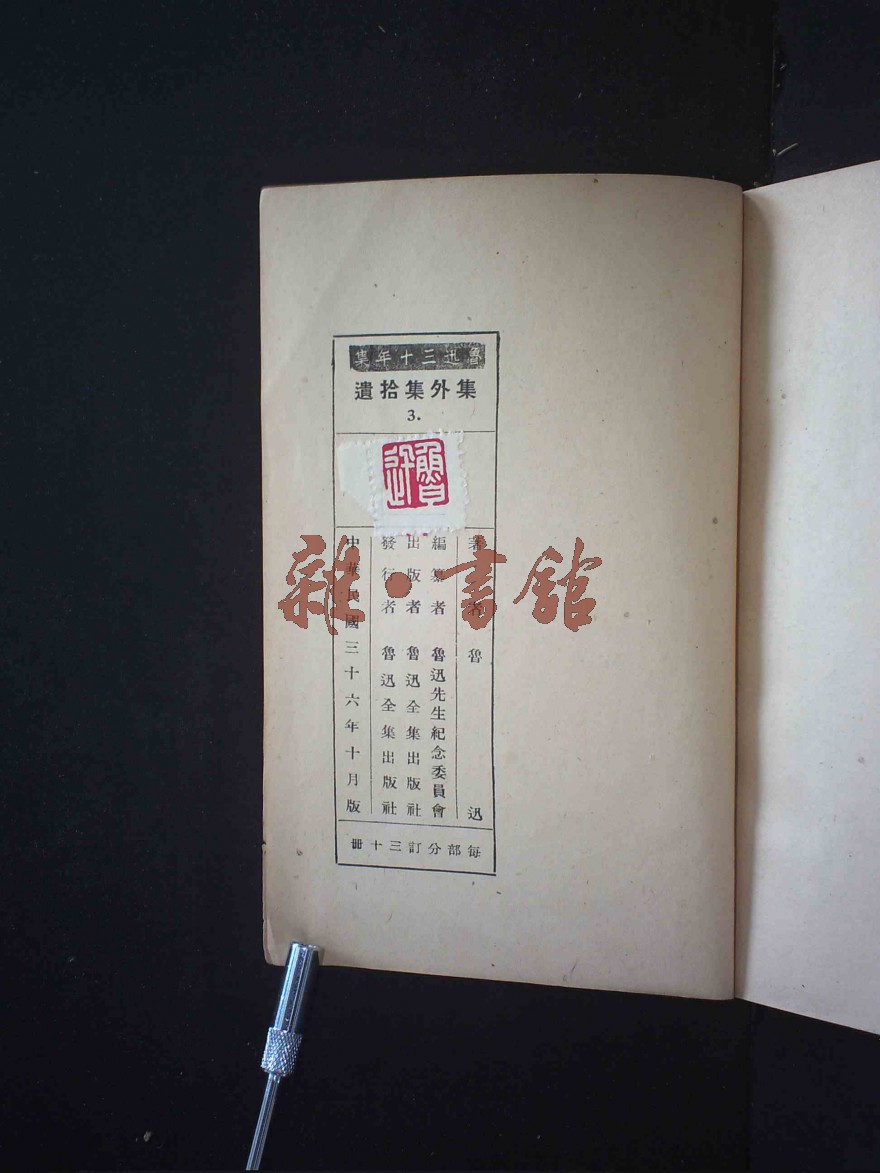 魯迅三十年集
集外集拾遺
3.
魯迅
著者 魯迅
編纂者 魯迅先生紀念委員會
出版者 魯迅全集出版社
發行者 魯迅全集出版社
中華民國三十六年十月版
每部分訂三十冊
雜·書館